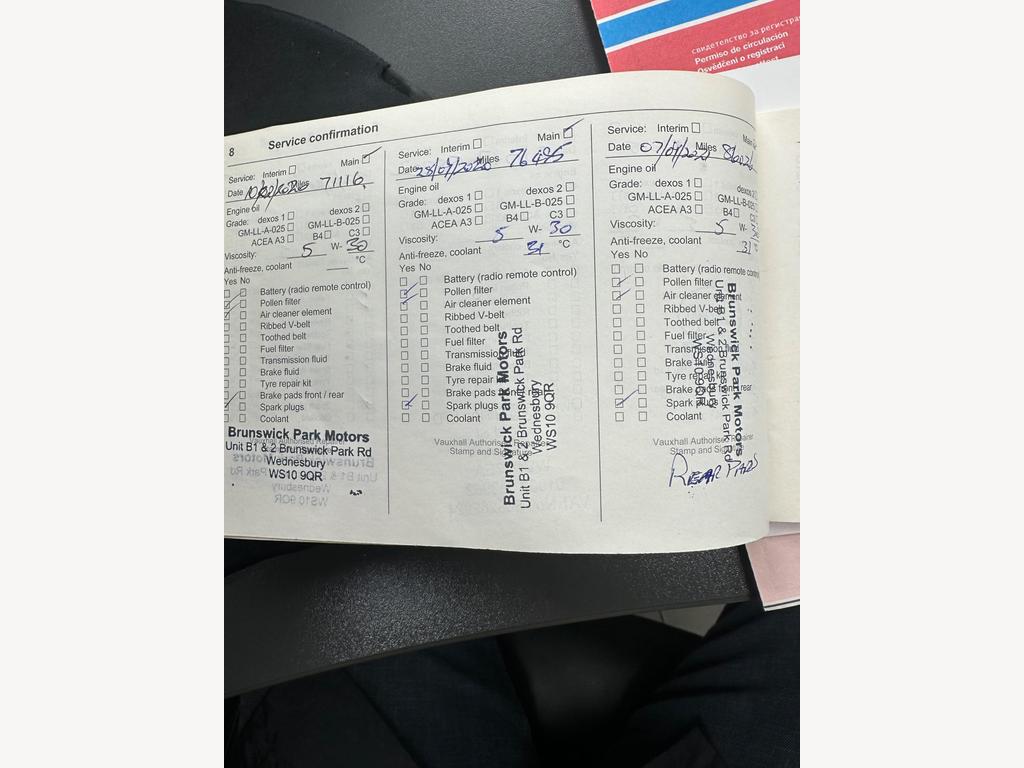 свидетелство за регистра
Permiso de circulación
Osvědčení o registraci
8 Service confirmation
Service: Interim
Main
Date Miles 71116
Engine oil
Grade: dexos 1 dexos 2
GM-LL-A-025 GM-LL-B-025
ACEA A3 B4 C3
Viscosity: 5 W- 30
Anti-freeze, coolant °C
Yes No
Battery (radio remote control)
Pollen filter
Air cleaner element
Ribbed V-belt
Toothed belt
Fuel filter
Transmission fluid
Brake fluid
Tyre repair kit
Brake pads front / rear
Spark plugs
Coolant
Vauxhall Authorised Repairer
Brunswick Park Motors
Unit B1 & 2 Brunswick Park Rd
Wednesbury
WS10 9QR
Service: Interim Main
Date Miles 76485
Engine oil
Grade: dexos 1 dexos 2
GM-LL-A-025 GM-LL-B-025
ACEA A3 B4 C3
Viscosity: 5 W- 30
Anti-freeze, coolant 31 °C
Yes No
Battery (radio remote control)
Pollen filter
Air cleaner element
Ribbed V-belt
Toothed belt
Fuel filter
Transmission fluid
Brake fluid
Tyre repair kit
Brake pads front / rear
Spark plugs
Coolant
Vauxhall Authorised Repairer
Stamp and Signature
Brunswick Park Motors
Unit B1 & 2 Brunswick Park Rd
Wednesbury
WS10 9QR
Service: Interim Main
Date Miles
Engine oil
Grade: dexos 1 dexos
GM-LL-A-025 GM-LL-B-02
ACEA A3 B4 C3
Viscosity: 5 W-
Anti-freeze, coolant 31 °
Yes No
Battery (radio remote con
Pollen filter
Air cleaner element
Ribbed V-belt
Toothed belt
Fuel filter
Transmission fluid
Brake fluid
Tyre repair kit
Brake pads front / rear
Spark plugs
Coolant
Vauxhall Authorised Repairer
Stamp and Signature
Brunswick Park Motors
Unit B1 & 2 Brunswick Park Rd
Wednesbury
WS10 9QR
REAR PADS